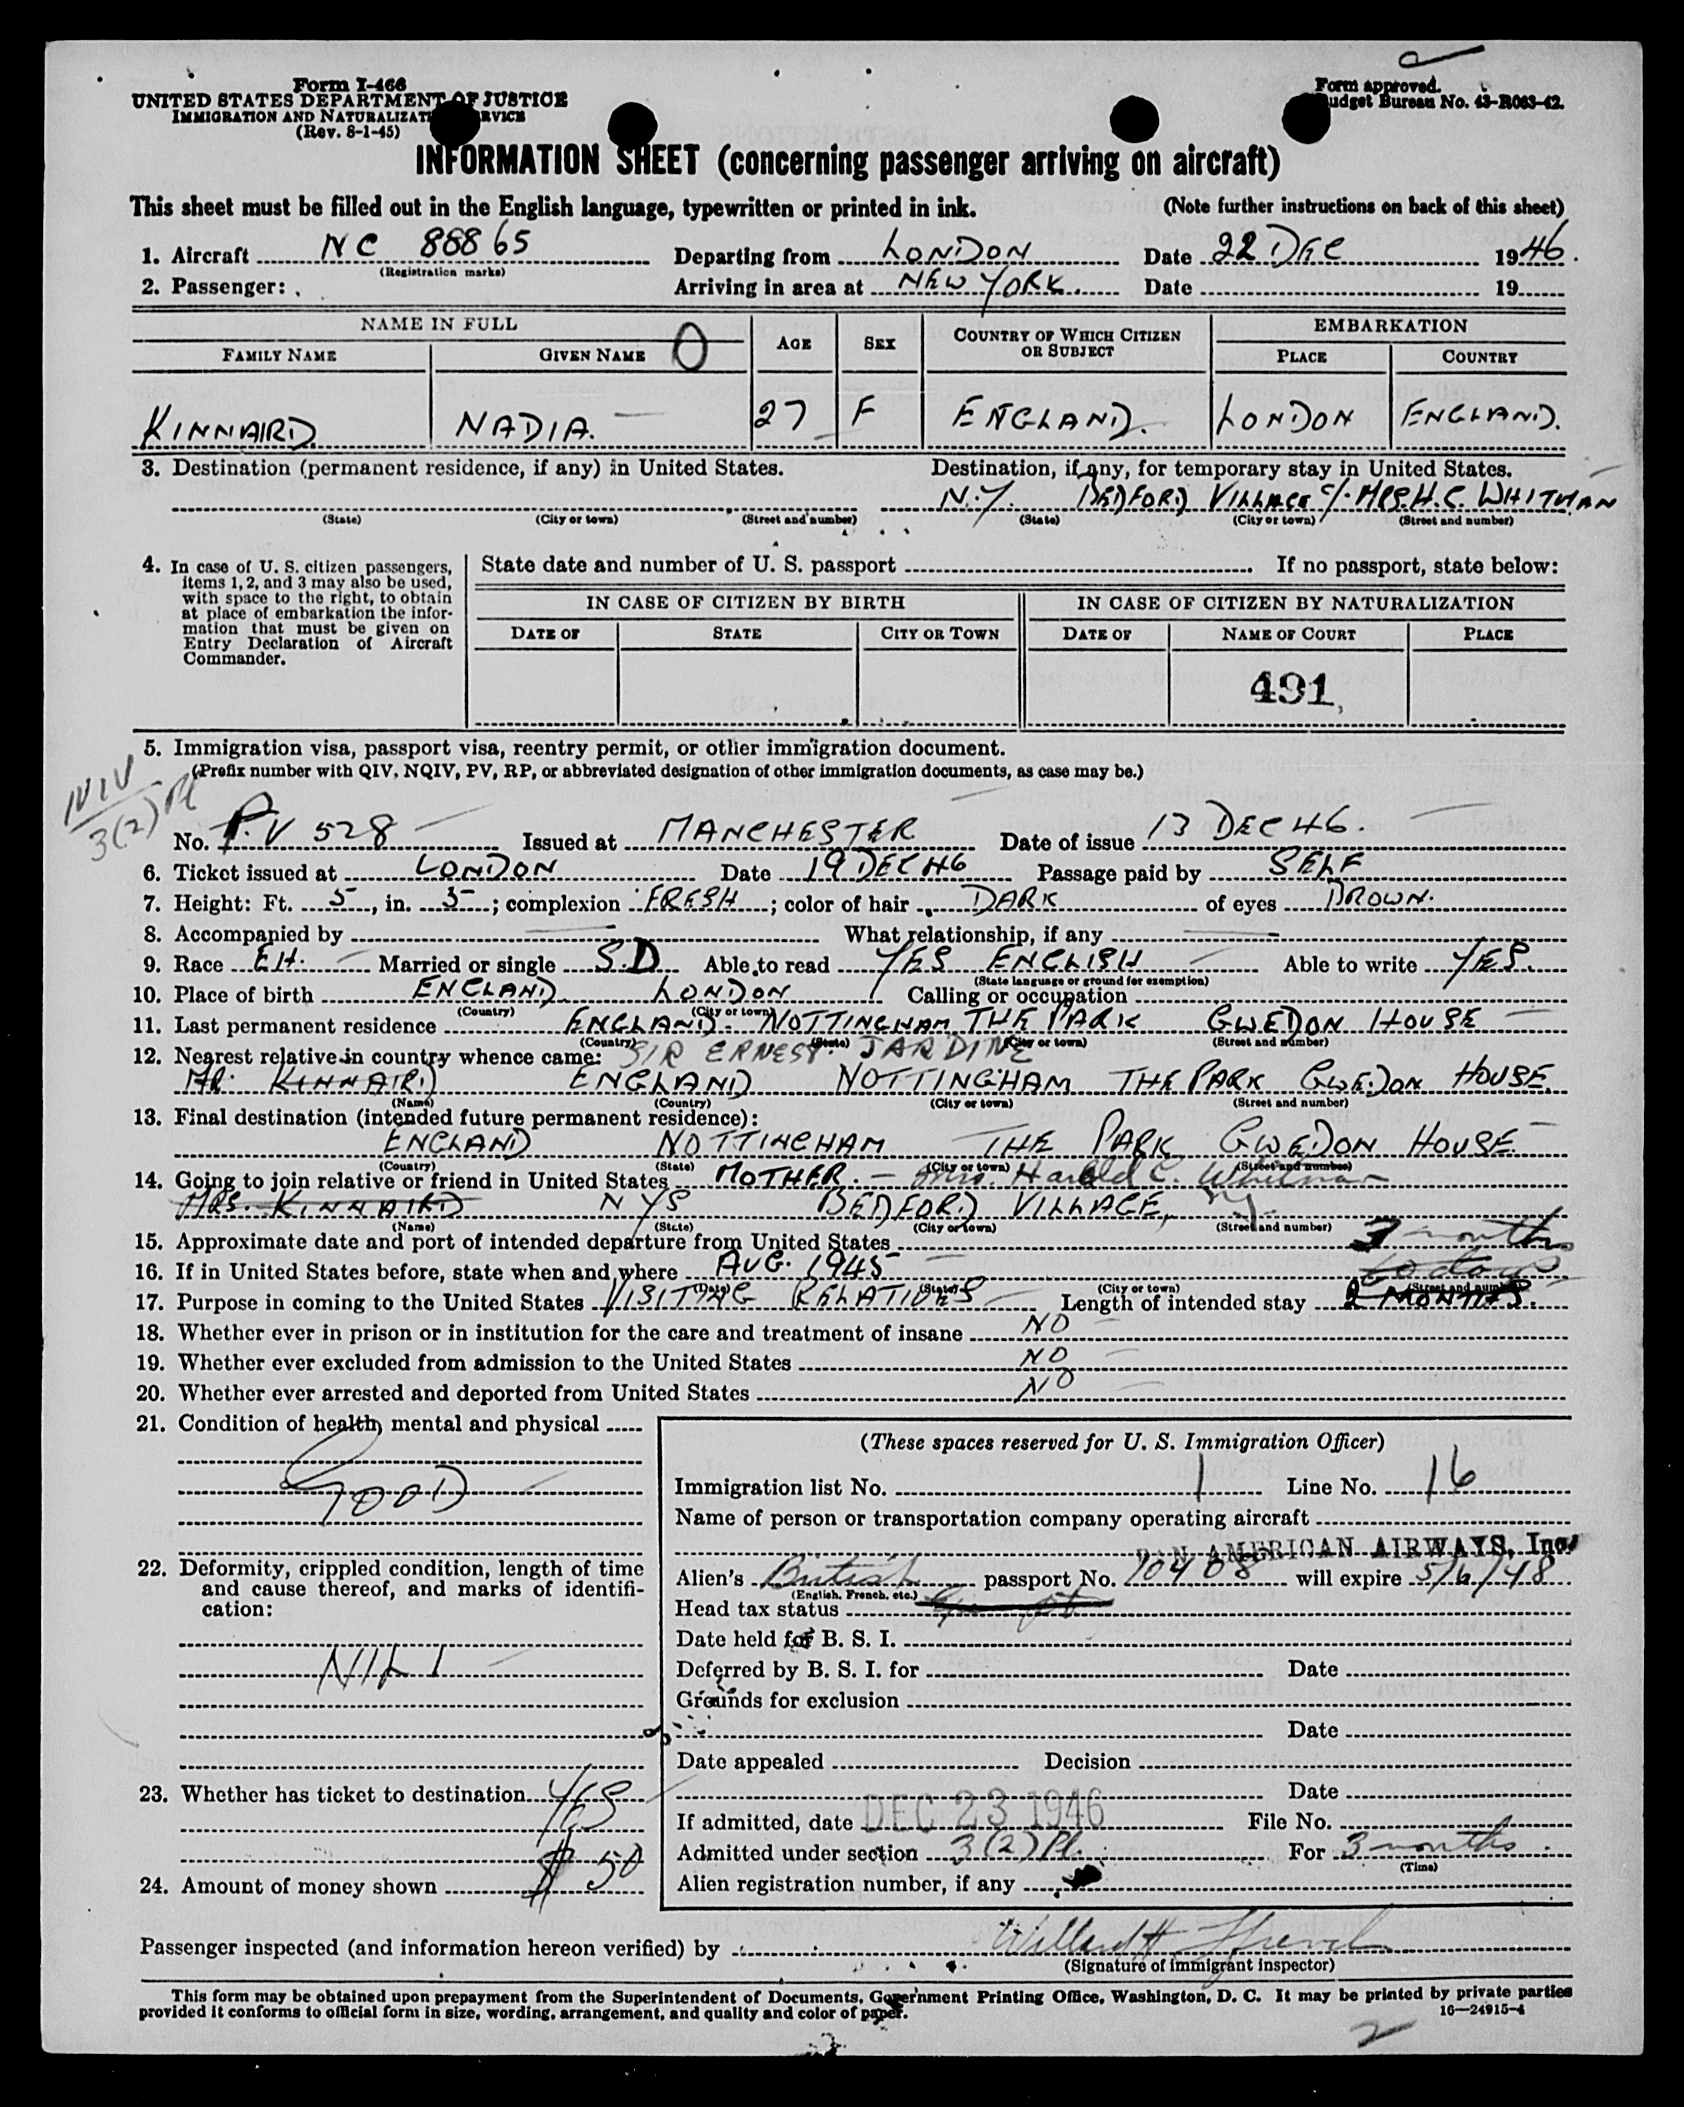 Form I-466
UNITED STATES DEPARTMENT OF JUSTICE
IMMIGRATION AND NATURALIZATION SERVICE
(Rev. 8-1-45)
Form approved.
Budget Bureau No. 43-R063-42.
INFORMATION SHEET (concerning passenger arriving on aircraft)
This sheet must be filled out in the English language, typewritten or printed in ink. (Note further instructions on back of this sheet)
1. Aircraft NC 88865 Departing from LONDON Date 22 DEC 1946.
(Registration marks)
2. Passenger: Arriving in area at NEW YORK. Date 19
NAME IN FULL O AGE SEX COUNTRY OF WHICH CITIZEN OR SUBJECT EMBARKATION
FAMILY NAME GIVEN NAME PLACE COUNTRY
KINNAIRD NADIA. 27 F ENGLAND. LONDON ENGLAND.
3. Destination (permanent residence, if any) in United States. Destination, if any, for temporary stay in United States.
N.Y. BEDFORD VILLAGE c/. MRS. H. C. WHITMAN
(State) (City or town) (Street and number) (State) (City or town) (Street and number)
4. In case of U. S. citizen passengers, items 1, 2, and 3 may also be used, with space to the right, to obtain at place of embarkation the information that must be given on Entry Declaration of Aircraft Commander.
State date and number of U. S. passport If no passport, state below:
IN CASE OF CITIZEN BY BIRTH IN CASE OF CITIZEN BY NATURALIZATION
DATE OF STATE CITY OR TOWN DATE OF NAME OF COURT PLACE
491
5. Immigration visa, passport visa, reentry permit, or other immigration document.
(Prefix number with QIV, NQIV, PV, RP, or abbreviated designation of other immigration documents, as case may be.)
NIV
3(2) Pl
No. P.V 528 Issued at MANCHESTER Date of issue 13 DEC 46.
6. Ticket issued at LONDON Date 19 DEC 46 Passage paid by SELF
7. Height: Ft. 5, in. 5; complexion FRESH; color of hair DARK of eyes BROWN.
8. Accompanied by What relationship, if any
9. Race EH. Married or single S.D Able to read YES ENGLISH Able to write YES.
(State language or ground for exemption)
10. Place of birth ENGLAND LONDON Calling or occupation
(Country) (City or town)
11. Last permanent residence ENGLAND. NOTTINGHAM THE PARK GWEDON HOUSE
(Country) (State) (City or town) (Street and number)
12. Nearest relative in country whence came: SIR ERNEST JARDINE
MR. KINNAIRD ENGLAND NOTTINGHAM THE PARK GWEDON HOUSE.
(Name) (Country) (City or town) (Street and number)
13. Final destination (intended future permanent residence):
ENGLAND NOTTINGHAM THE PARK GWEDON HOUSE
(Country) (State) (City or town) (Street and number)
14. Going to join relative or friend in United States MOTHER. - Mrs. Harold C. Whitman
MRS. KINNAIRD NYS BEDFORD VILLAGE, NY.
(Name) (State) (City or town) (Street and number)
15. Approximate date and port of intended departure from United States 3 months
16. If in United States before, state when and where AUG. 1945
(Date) (State) (City or town) (Street and number)
17. Purpose in coming to the United States VISITING RELATIVES Length of intended stay 2 MONTHS.
18. Whether ever in prison or in institution for the care and treatment of insane NO
19. Whether ever excluded from admission to the United States NO
20. Whether ever arrested and deported from United States NO
21. Condition of health, mental and physical
GOOD
22. Deformity, crippled condition, length of time and cause thereof, and marks of identification:
NIL
23. Whether has ticket to destination YES
24. Amount of money shown $ 50
(These spaces reserved for U. S. Immigration Officer)
Immigration list No. 1 Line No. 16
Name of person or transportation company operating aircraft
PAN AMERICAN AIRWAYS, Inc.
Alien's British passport No. 10408 will expire 5/6/48
(English, French, etc.)
Head tax status
Date held for B. S. I.
Deferred by B. S. I. for Date
Grounds for exclusion
Date
Date appealed Decision
Date
If admitted, date DEC 23 1946 File No.
Admitted under section 3(2) Pl. For 3 months.
(Time)
Alien registration number, if any
Passenger inspected (and information hereon verified) by
(Signature of immigrant inspector)
This form may be obtained upon prepayment from the Superintendent of Documents, Government Printing Office, Washington, D. C. It may be printed by private parties
provided it conforms to official form in size, wording, arrangement, and quality and color of paper. 16—24915-4
2